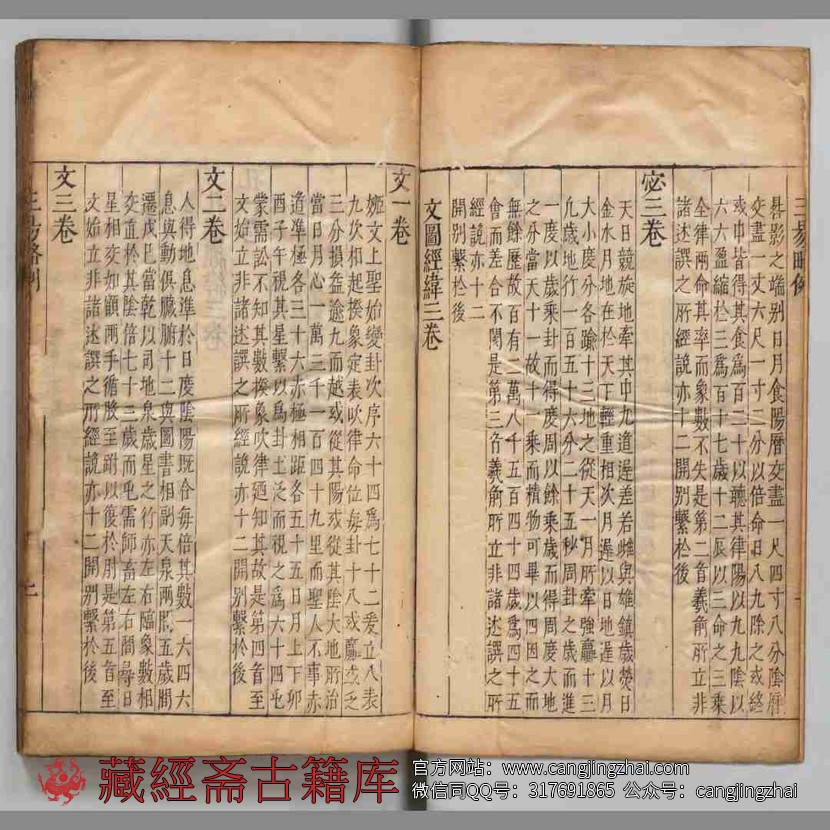 三易略例
晷影之端别日月食陽曆交盡一尺四寸八分陰曆
交盡一丈六尺一寸二分以倍命日八九除之或終
或中皆得其食爲百二十以聽其律陽以九九陰以
六六盈縮於三爲百十七歲十二辰以三命之三乘
全律兩命其率而象數不失是第二首羲劑所立非
諸述譔之所經説亦十二開别繫於後
宓三卷
天日競旋地牽其中九道遲差若雌與雄鎮歲熒日
金水月地在於天下輕重相次月遲以日地遲以月
大小度分各踰十三地之從天一月所牽強羸十三
九歲地行一百五十六分二十五秒周卦之歲而進
一度以歲乘卦而得度周以餘乘歲而得周度大地
之分當天十一故十一乘而積物可畢以四因之而
無餘歷故百有二萬八千五百四十四歲爲四十五
會而差合不閡是第三首羲劑所立非諸述譔之所
經説亦十二
開别繫於後
文圖經緯三卷
文一卷
姬文上聖始變卦次序六十四爲七十二爰立八表
九次相起揆象定表吹律命位每卦十八或羸或乏
三分損益逾九而越或從其陽或從其陰大地所治
當日月心一萬三千一百四十九里而聖人不事赤
道準極各三十六赤極相距各五十五日月上下卯
酉子午視其星繫以爲卦主泛而視之爲六十四屯
蒙需訟不知其數揆象吹律廼知其故是第四首至
文始立非諸述譔之所經説亦十二開别繫於後
文二卷
人得地息準於日度陰陽既合每倍其數一六四六
息與動俱臟腑十二與圖書相副天泉兩間五歲閏
遷戊巳當乾以司地泉歲星之行亦左右臨象數相
交直於其陰倍七十三歲而屯需師畜左右間尋日
星相交如顧兩手循股至跗以復於肘是第五首至
文始立非諸述譔之所經説亦十二開别繫於後
文三卷
三易略例
二